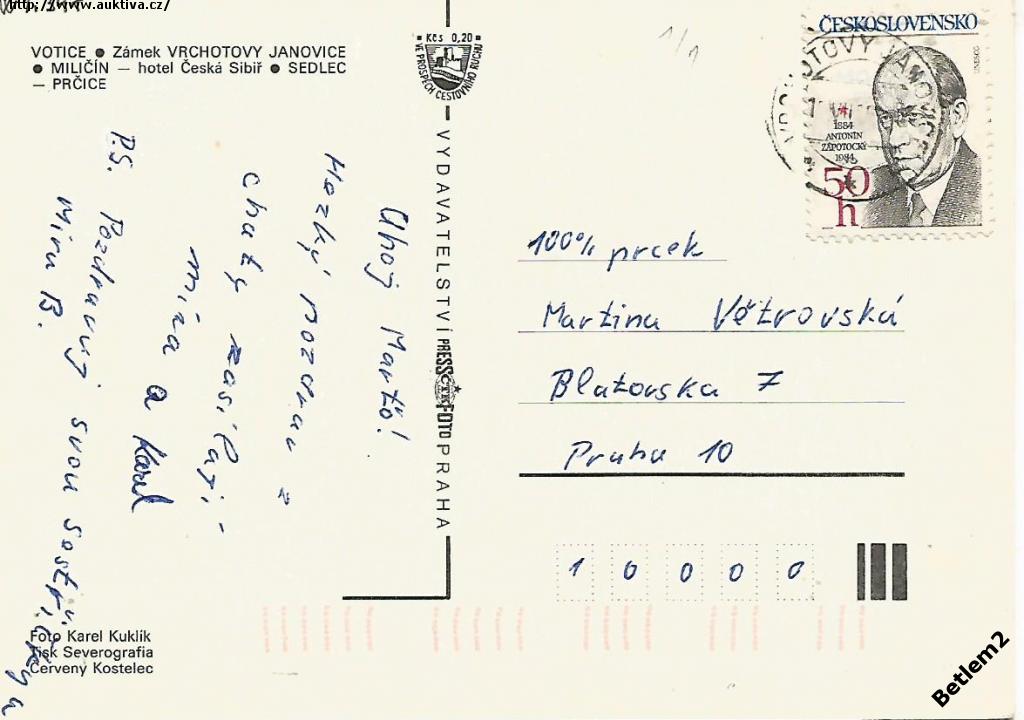 http://www.auktiva.cz/
VOTICE ● Zámek VRCHOTOVY JANOVICE
● MILIČÍN — hotel Česká Sibiř ● SEDLEC
— PRČICE
Kčs 0,20
VE PROSPĚCH CESTOVNÍHO RUCHU
Ahoj Marťo!
Hezký pozdrav z
chaty zasílají
Míra a Karel
P.S. Pozdravuj svou sestřičku
Míru B.
VYDAVATELSTVÍ PRESSFOTO PRAHA
ČTK
1/1
ČESKOSLOVENSKO
UNESCO
1884
ANTONÍN
ZÁPOTOCKÝ
1984
50
h
VRCHOTOVY JANOVICE
100% prcek
Martina Větrovská
Blatovska 7
Praha 10
1 0 0 0 0
Foto Karel Kuklík
Tisk Severografia
Červený Kostelec
Betlem2